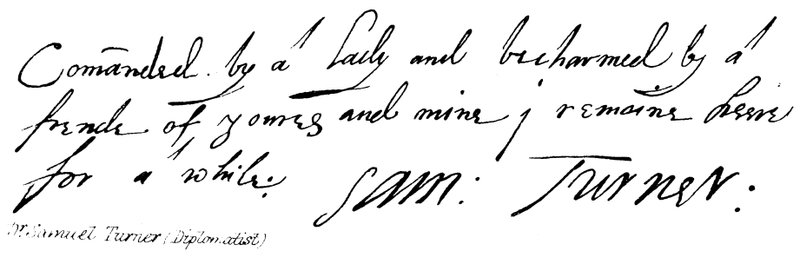 Comānded by a' Lady and becharmed by a'
frende of youres and mine j remaine heere
for a' while:
Sam: Turner:
Dr. Samuel Turner (Diplomatist)